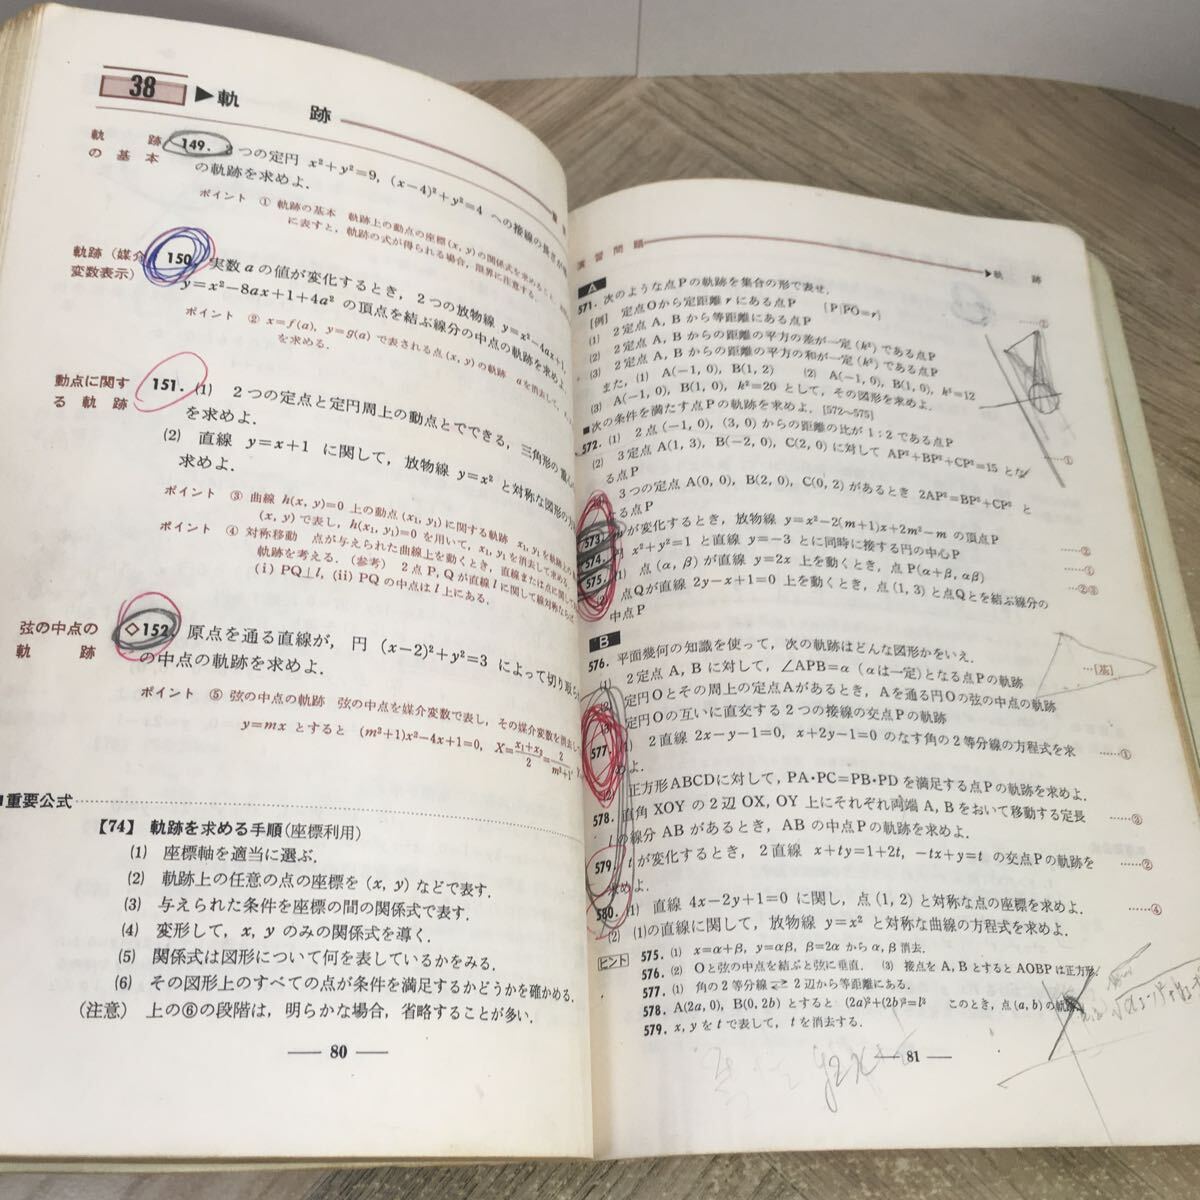 38 ▶軌 跡
軌 跡
の 基 本
149. 2つの定円 x²+y²=9, (x−4)²+y²=4 への接線の長さが
の軌跡を求めよ.
ポイント ① 軌跡の基本 軌跡上の動点の座標(x, y)の関係式を求める
に表すと, 軌跡の式が得られる場合, 限界に注意する.
軌跡(媒介
変数表示)
150. 実数 a の値が変化するとき, 2つの放物線 y=x²−4ax+1,
y=x²−8ax+1+4a² の頂点を結ぶ線分の中点の軌跡を求めよ.
ポイント ② x=f(a), y=g(a) で表される点(x, y)の軌跡 aを消去して,
を求める.
動点に関す
る 軌 跡
151. (1) 2つの定点と定円周上の動点とでできる, 三角形の重心の
を求めよ.
(2) 直線 y=x+1 に関して, 放物線 y=x² と対称な図形の方
求めよ.
ポイント ③ 曲線 h(x, y)=0 上の動点(x₁, y₁)に関する軌跡 x₁, y₁を
(x, y)で表し, h(x₁, y₁)=0 を用いて, x₁, y₁を消去して求める.
ポイント ④ 対称移動 点が与えられた曲線上を動くとき, 直線または点に関して
軌跡を考える. (参考) 2点P, Qが直線lに関して線対称ならば,
(i) PQ⊥l, (ii) PQの中点はl上にある.
弦の中点の
軌 跡
◇152. 原点を通る直線が, 円 (x−2)²+y²=3 によって切り取ら
の中点の軌跡を求めよ.
ポイント ⑤ 弦の中点の軌跡 弦の中点を媒介変数で表し, その媒介変数を消去し
y=mx とすると (m²+1)x²−4x+1=0, X=(x₁+x₂)/2=2/(m²+1),
■重要公式
【74】 軌跡を求める手順(座標利用)
(1) 座標軸を適当に選ぶ.
(2) 軌跡上の任意の点の座標を (x, y) などで表す.
(3) 与えられた条件を座標の間の関係式で表す.
(4) 変形して, x, y のみの関係式を導く.
(5) 関係式は図形について何を表しているかをみる.
(6) その図形上のすべての点が条件を満足するかどうかを確かめる.
(注意) 上の⑥の段階は, 明らかな場合, 省略することが多い.
— 80 —
演 習 問 題
▶軌 跡
A
571. 次のような点Pの軌跡を集合の形で表せ.
[例] 定点Oから定距離 r にある点P {P|PO=r}
(1) 2定点 A, B から等距離にある点P
(2) 2定点 A, B からの距離の平方の差が一定(k²)である点P
(3) 2定点 A, B からの距離の平方の和が一定(k²)である点P
また, (1) A(−1, 0), B(1, 2) (2) A(−1, 0), B(1, 0), k²=12
(3) A(−1, 0), B(1, 0), k²=20 として, その図形を求めよ.
■次の条件を満たす点Pの軌跡を求めよ. [572〜575]
572. (1) 2点(−1, 0), (3, 0)からの距離の比が 1:2 である点P
(2) 3定点 A(1, 3), B(−2, 0), C(2, 0)に対して AP²+BP²+CP²=15 とな
る点P ……①
3つの定点 A(0, 0), B(2, 0), C(0, 2)があるとき 2AP²=BP²+CP² と
なる点P
573. mが変化するとき, 放物線 y=x²−2(m+1)x+2m²−m の頂点P ……②
574. 円 x²+y²=1 と直線 y=−3 とに同時に接する円の中心P ……①
575. (1) 点(α, β)が直線 y=2x 上を動くとき, 点P(α+β, αβ) ……②③
(2) 点Qが直線 2y−x+1=0 上を動くとき, 点(1, 3)と点Qとを結ぶ線分の
中点P
B
576. 平面幾何の知識を使って, 次の軌跡はどんな図形かをいえ. ……[基]
(1) 2定点 A, B に対して, ∠APB=α (αは一定)となる点Pの軌跡
(2) 定円Oとその周上の定点Aがあるとき, Aを通る円Oの弦の中点の軌跡
(3) 定円Oの互いに直交する2つの接線の交点Pの軌跡
577. (1) 2直線 2x−y−1=0, x+2y−1=0 のなす角の2等分線の方程式を求
めよ. ……①
(2) 正方形ABCDに対して, PA・PC=PB・PD を満足する点Pの軌跡を求めよ.
578. 直角 XOY の2辺 OX, OY 上にそれぞれ両端 A, B をおいて移動する定長
lの線分 AB があるとき, AB の中点Pの軌跡を求めよ. ……③
579. tが変化するとき, 2直線 x+ty=1+2t, −tx+y=t の交点Pの軌跡を
求めよ. ……②
580. (1) 直線 4x−2y+1=0 に関し, 点(1, 2)と対称な点の座標を求めよ.
(2) (1)の直線に関して, 放物線 y=x² と対称な曲線の方程式を求めよ. ……④
ヒント 575. (1) x=α+β, y=αβ, β=2α から α, β 消去.
576. (2) Oと弦の中点を結ぶと弦に垂直. (3) 接点を A, B とすると AOBP は正方形.
577. (1) 角の2等分線⇄2辺から等距離にある.
578. A(2a, 0), B(0, 2b) とすると (2a)²+(2b)²=l² このとき, 点(a, b)の軌跡.
579. x, y を t で表して, t を消去する.
— 81 —